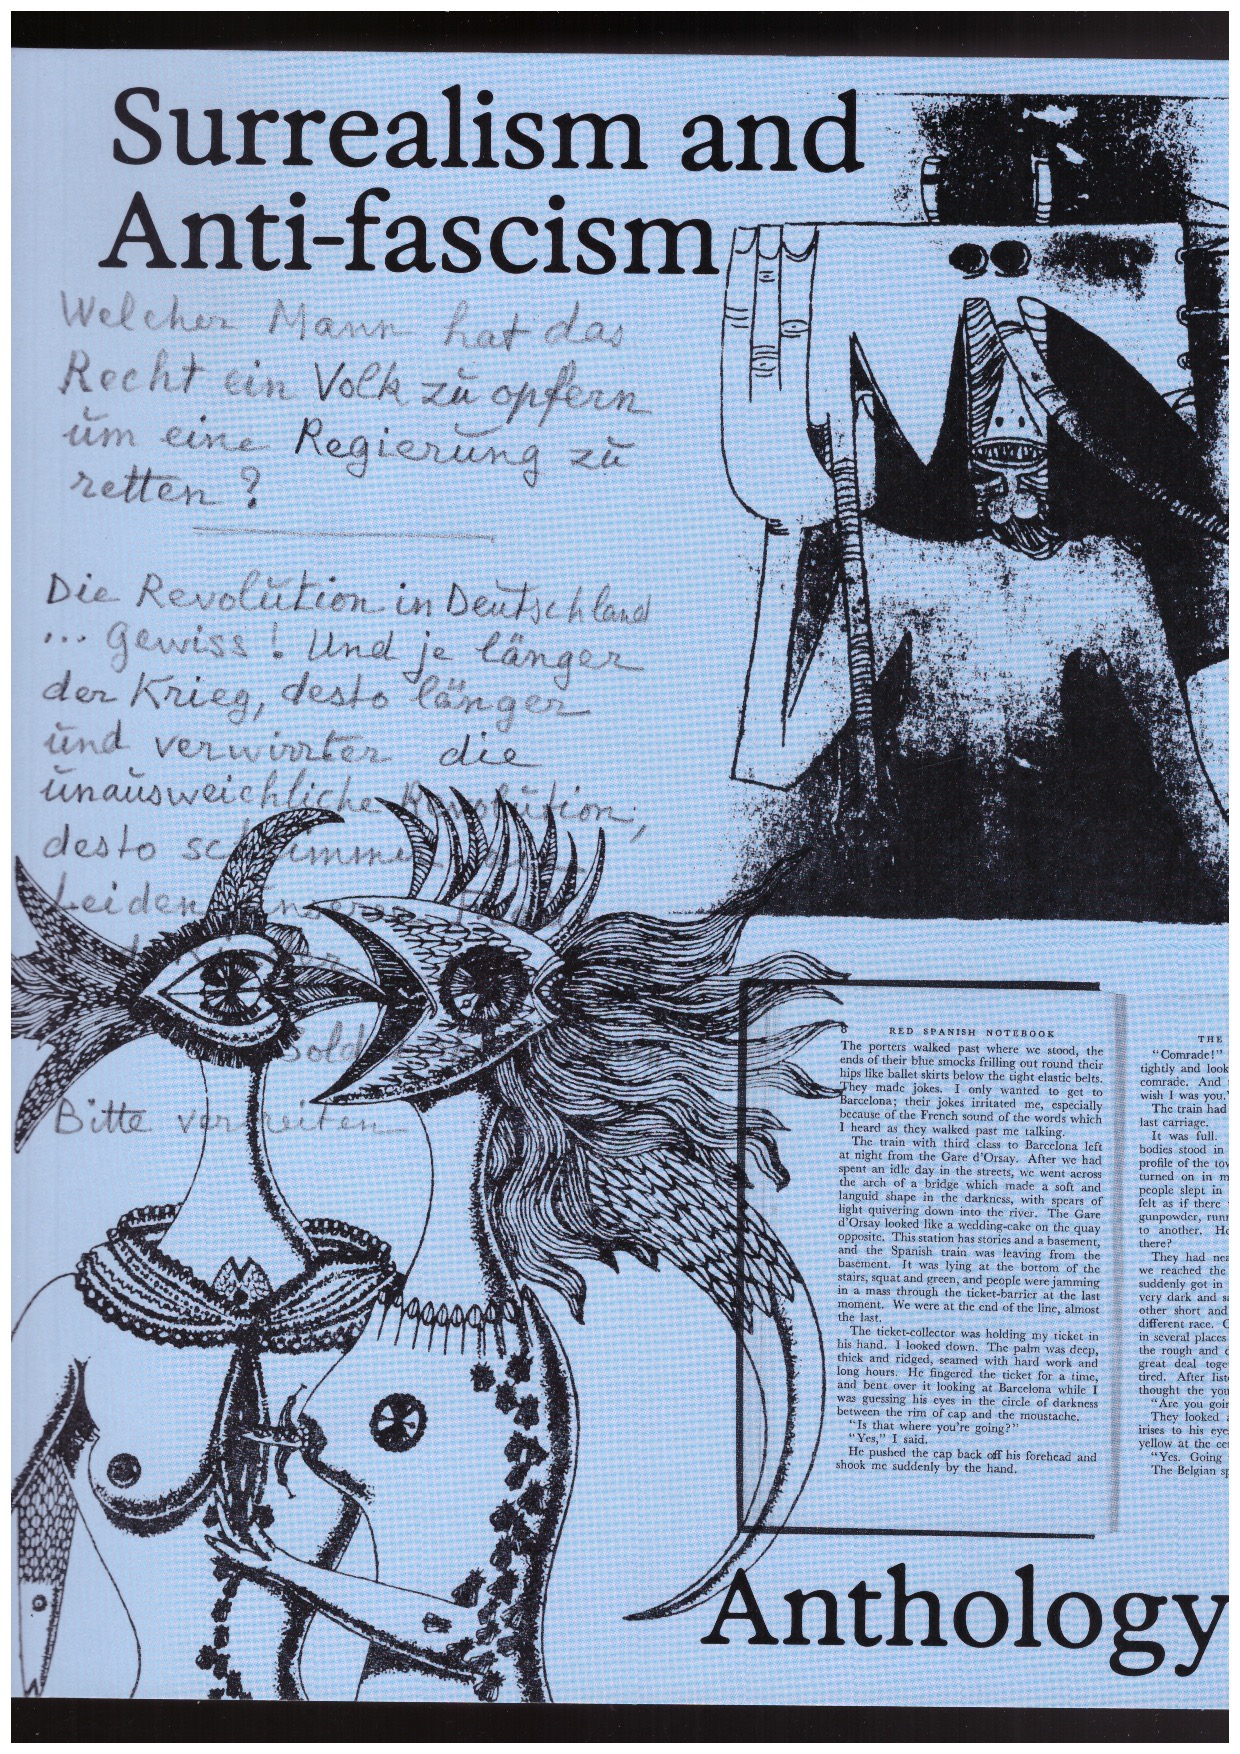 Surrealism and
Anti-fascism
Welcher Mann hat das
Recht ein Volk zu opfern
um eine Regierung zu
retten?
Die Revolution in Deutschland
... Gewiss! Und je länger
der Krieg, desto länger
und verwirrter die
unausweichliche Revolution,
desto schlimmer
Leiden
Bitte verbreiten
8 RED SPANISH NOTEBOOK
The porters walked past where we stood, the
ends of their blue smocks frilling out round their
hips like ballet skirts below the tight elastic belts.
They made jokes. I only wanted to get to
Barcelona; their jokes irritated me, especially
because of the French sound of the words which
I heard as they walked past me talking.
The train with third class to Barcelona left
at night from the Gare d'Orsay. After we had
spent an idle day in the streets, we went across
the arch of a bridge which made a soft and
languid shape in the darkness, with spears of
light quivering down into the river. The Gare
d'Orsay looked like a wedding-cake on the quay
opposite. This station has stories and a basement,
and the Spanish train was leaving from the
basement. It was lying at the bottom of the
stairs, squat and green, and people were jamming
in a mass through the ticket-barrier at the last
moment. We were at the end of the line, almost
the last.
The ticket-collector was holding my ticket in
his hand. I looked down. The palm was deep,
thick and ridged, seamed with hard work and
long hours. He fingered the ticket for a time,
and bent over it looking at Barcelona while I
was guessing his eyes in the circle of darkness
between the rim of cap and the moustache.
"Is that where you're going?"
"Yes," I said.
He pushed the cap back off his forehead and
shook me suddenly by the hand.
THE
"Comrade!"
tightly and look
comrade. And
wish I was you."
The train had
last carriage.
It was full.
bodies stood in
profile of the
turned on in
people slept in
felt as if there
gunpowder,
to another.
there?
They had
we reached the
suddenly got in
very dark and
other short and
different race.
in several places
the rough and
great deal
tired. After
thought the
"Are you
They looked
irises to his
yellow at the
"Yes. Going
The Belgian
Anthology